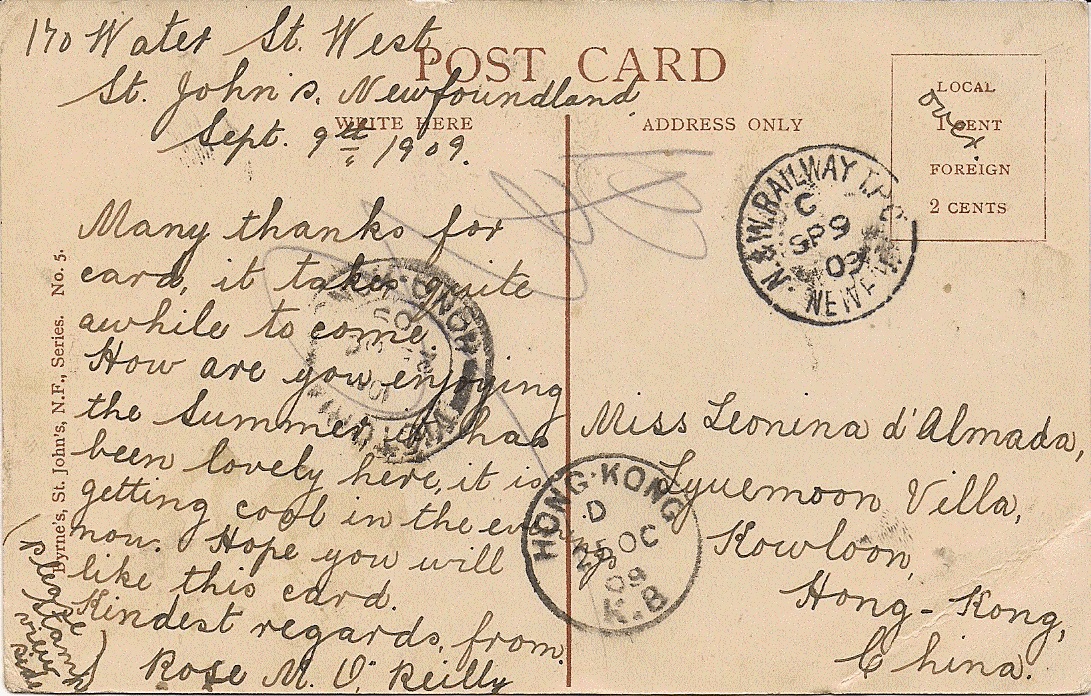 170 Water St. West
St. John's, Newfoundland
Sept. 9th, 1909.
POST CARD
WRITE HERE
ADDRESS ONLY
LOCAL
1 CENT
FOREIGN
2 CENTS
over
Many thanks for
card, it takes quite
awhile to come.
How are you enjoying
the Summer, it has
been lovely here, it is
getting cool in the evenings
now. Hope you will
like this card.
Kindest regards, from
Rose M. O'Reilly
(Please
stamp
view
side)
Byrne's, St. John's, N.F., Series. No. 5.
N. & W. RAILWAY T.P.O.
C
SP 9
09
NEWF'D
HONG-KONG
HONG-KONG
D
25 OC
09
K.B
Miss Leonina d'Almada,
Lyuemoon Villa,
Kowloon,
Hong-Kong,
China.